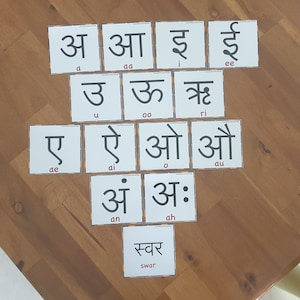 अ आ इ ई
a aa i ee
उ ऊ ऋ
u oo ri
ए ऐ ओ औ
ae ai o au
अं अः
an ah
स्वर
swar